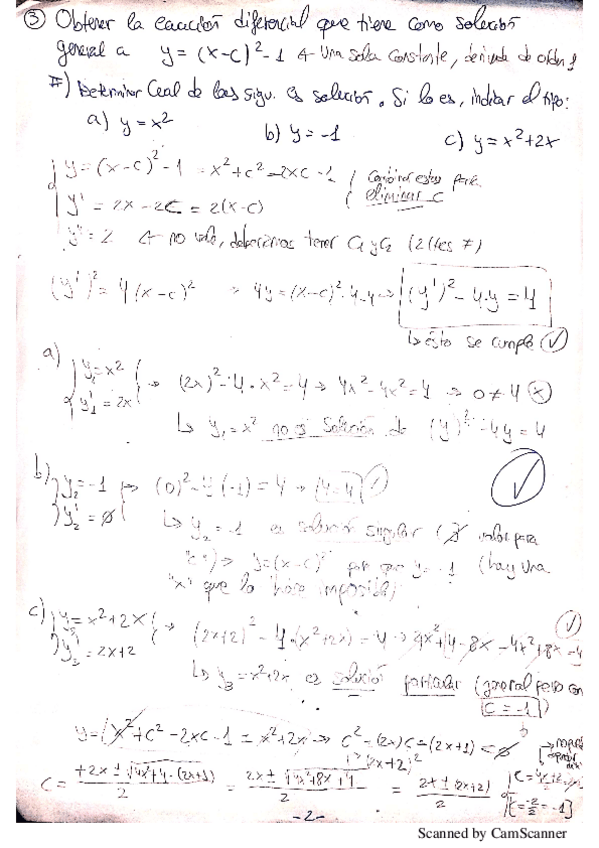 ③ Obtener la ecuación diferencial que tiene como solución
general a y = (x-c)² - 1 ← Una sola constante, derivada de orden 1
#) Determinar cual de las sigu. es solución. Si lo es, indicar el tipo:
a) y = x² b) y = -1 c) y = x² + 2x
y = (x-c)² - 1 = x² + c² - 2xc - 1 Combinar estas para
y' = 2x - 2c = 2(x-c) eliminar C
y'' = 2 ← no vale, deberíamos tener C₁ y C₂ (2 ctes ≠)
(y')² = 4(x-c)² → 4y = (x-c)²·4 - 4 → (y')² - 4·y = 4
↳ ésto se cumple ✓
a) y₁ = x²
y₁' = 2x → (2x)² - 4·x² = 4 → 4x² - 4x² = 4 → 0 ≠ 4 ⊗
↳ y₁ = x² no es solución de (y')² - 4y = 4
b) y₂ = -1 → (0)² - 4(-1) = 4 → 4 = 4 ✓
y₂' = ∅
↳ y₂ = -1 es solución singular (∄ valor para
"c") → y = (x-c)² y = -1 (hay una
"x" que lo hace imposible)
c) y₃ = x² + 2x
y₃' = 2x + 2 → (2x+2)² - 4·(x²+2x) = 4 → 4x² + 4 + 8x - 4x² - 8x = 4 ✓
↳ y₃ = x² + 2x es solución particular (general pero con
C = -1)
y = x² + c² - 2xc - 1 = x² + 2x → c² - (2x)c - (2x+1) = ∅
(2x+2)²
c = +2x ± √(4x² + 4·(2x+1)) / 2 = 2x ± √(4x² + 8x + 4) / 2 = 2x ± (2x+2) / 2
C = -2/2 = -1
-2-
Scanned by CamScanner